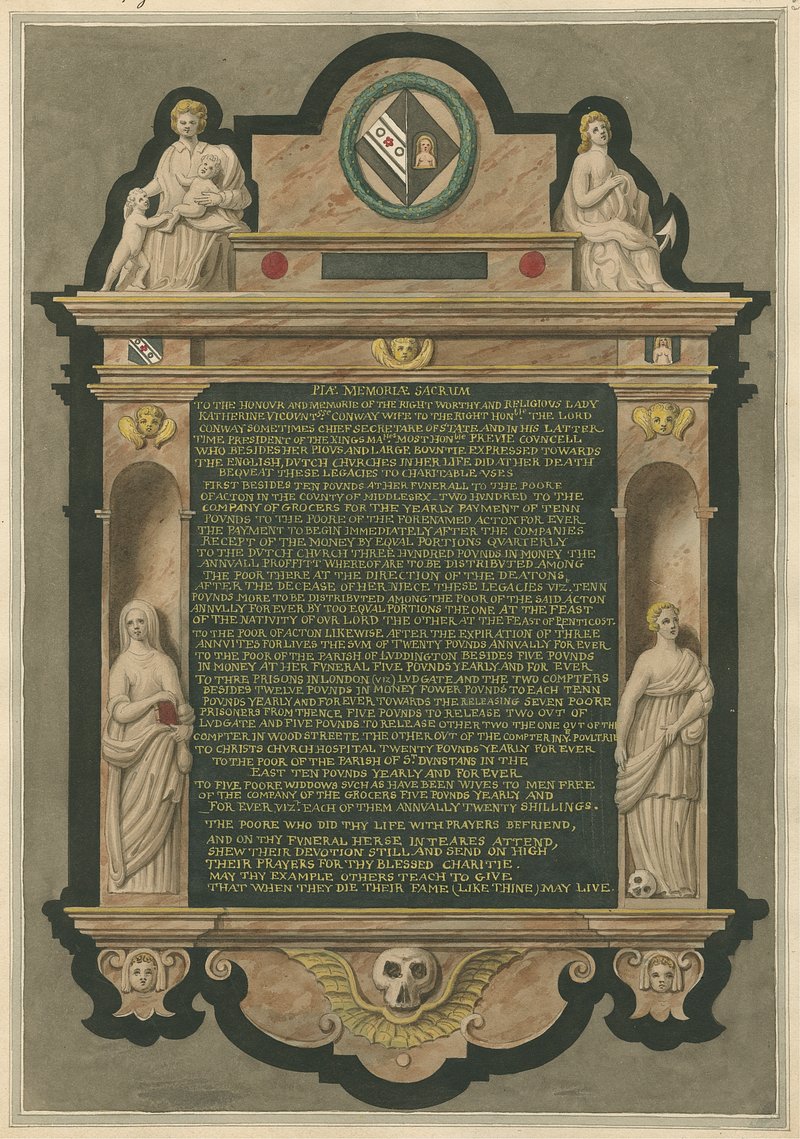 PIÆ MEMORIÆ SACRUM
TO THE HONOUR AND MEMORIE OF THE RIGHT WORTHY AND RELIGIOUS LADY
KATHERINE VICOVNTsse CONWAY WIFE TO THE RIGHT HONble THE LORD
CONWAY SOMETIMES CHIEF SECRETARE OF STATE AND IN HIS LATTER
TIME PRESIDENT OF THE KINGS MAties MOST HONble PREVIE COVNCELL
WHO BESIDES HER PIOVS AND LARGE BOVNTIE EXPRESSED TOWARDS
THE ENGLISH, DVTCH CHVRCHES IN HER LIFE DID AT HER DEATH
BEQVEATH THESE LEGACIES TO CHARITABLE VSES
FIRST BESIDES TEN POVNDS AT HER FVNERALL TO THE POORE
OF ACTON IN THE COVNTY OF MIDDLESEX _ TWO HVNDRED TO THE
COMPANY OF GROCERS FOR THE YEARLY PAYMENT OF TENN
POVNDS TO THE POORE OF THE FORENAMED ACTON FOR EVER
THE PAYMENT TO BEGIN IMMEDIATELY AFTER THE COMPANIES
RECEPT OF THE MONEY BY EQVAL PORTIONS QVARTERLY
TO THE DVTCH CHVRCH THREE HVNDRED POVNDS IN MONEY THE
ANNVALL PROFFITT WHEREOF ARE TO BE DISTRIBVTED AMONG
THE POOR THERE AT THE DIRECTION OF THE DEATONS
AFTER THE DECEASE OF HER NIECE THESE LEGACIES VIZ. TENN
POVNDS MORE TO BE DISTRIBVTED AMONG THE POOR OF THE SAID ACTON
ANNVLLY FOR EVER BY TOO EQVAL PORTIONS THE ONE AT THE FEAST
OF THE NATIVITY OF OVR LORD THE OTHER AT THE FEAST OF PENTICOST.
TO THE POOR OF ACTON LIKEWISE AFTER THE EXPIRATION OF THREE
ANNVITES FOR LIVES THE SVM OF TWENTY POVNDS ANNVALLY FOR EVER
TO THE POOR OF THE PARISH OF LVDDINGTON BESIDES FIVE POVNDS
IN MONEY AT HER FVNERAL FIVE POVNDS YEARLY AND FOR EVER
TO THRE PRISONS IN LONDON (VIZ) LVDGATE AND THE TWO COMPTERS
BESIDES TWELVE POVNDS IN MONEY FOWER POVNDS TO EACH TENN
POVNDS YEARLY AND FOR EVER TOWARDS THE RELEASING SEVEN POORE
PRISONERS FROM THENCE FIVE POVNDS TO RELEASE TWO OVT OF
LVDGATE AND FIVE POVNDS TO RELEASE OTHER TWO THE ONE OVT OF THE
COMPTER IN WOOD STREETE THE OTHER OVT OF THE COMPTER IN Ye POVLTRIE
TO CHRISTS CHVRCH HOSPITAL TWENTY POVNDS YEARLY FOR EVER
TO THE POOR OF THE PARISH OF ST DVNSTANS IN THE
EAST TEN POVNDS YEARLY AND FOR EVER
TO FIVE POORE WIDDOWS SVCH AS HAVE BEEN WIVES TO MEN FREE
OF THE COMPANY OF THE GROCERS FIVE POVNDS YEARLY AND
_FOR EVER VIZt. EACH OF THEM ANNVALLY TWENTY SHILLINGS.
THE POORE WHO DID THY LIFE WITH PRAYERS BEFRIEND,
AND ON THY FVNERAL HERSE IN TEARES ATTEND,
SHEW THEIR DEVOTION STILL AND SEND ON HIGH
THEIR PRAYERS FOR THY BLESSED CHARITIE.
MAY THY EXAMPLE OTHERS TEACH TO GIVE
THAT WHEN THEY DIE THEIR FAME (LIKE THINE) MAY LIVE.